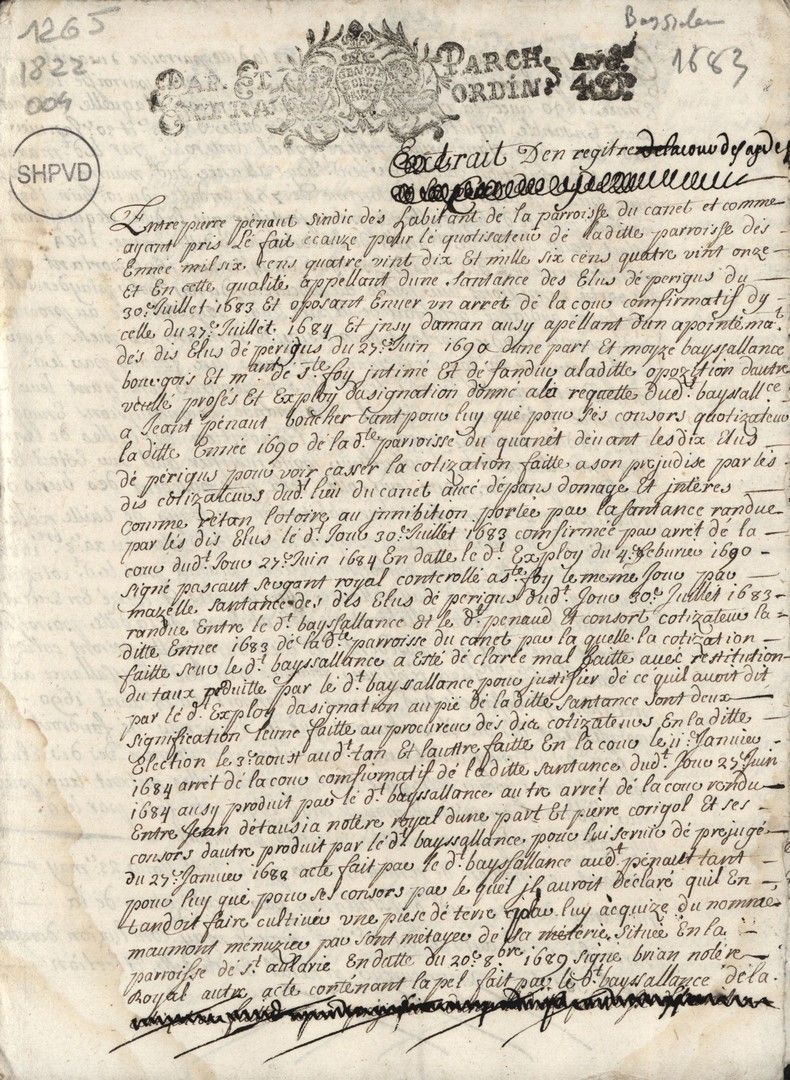 1265
1822
004
SHPVD
Bayssalan
1683
PAP. ET PARCH.
EXTRA ORDIN.
Extrait Den regitre
Entre pierre pénaut sindic dés habitant dé la parroisse du canet et comme
ayant pris Le fait écauze pour lé quotisateur dé laditte parroisse dés
Ennée mil six cens quatre vint dix Et mille six cens quatre vint onze
Et En cette qualité appellant dune santance des Elus dé perigus du
30.e Juillet 1683 Et oposant Enuer vn arrét dé la cour comfirmatif dy
celle du 27.e Juillet 1684 Et jnsy daman ausy apéllant d'un apointéma.t
dés dis Elus dé périgus du 27.e Juin 1690 dune part Et moyze bayssallance
bourgois Et m.ant dé s.te foy intimé Et dé fandur aladitte opozition dautre
veule prosés Et Exploy dasignation donné ala requette dud.t bayssall.ce
a Jeant pénaut boucher tant pour luy qué pour sés consors quotizateur
laditte Ennée 1690 dé la d.te parroisse du quanét deuant les dix Elus
dé périgus pour voir casser la cotization faitte a son préjudise par lés
dis cotizateurs dud.t lieu du canet auec dépans domage Et intérés
comme rétan lotoire au jnnibition portée par la santance randue
par lés dis Elus le d.t Jour 30.e Juillet 1683 comfirmée par arrét dé la
cour dud.t Jour 27.e Juin 1684 En datte le d.t Exploy du 4.e feburier 1690
signé pascaut sergant royal controllé a s.te foy le meme Jour par
mazelle santance des dis Elus dé périgus dud.t Jour 30.e Juillet 1683
randue Entre lé d.t bayssallance Et le d.t penaud Et consort cotizateur la
ditte Ennée 1683 dé la d.te parroisse du canet par la quelle la cotization
faitte seur lé d.t bayssallance a Esté dé clarée mal faitte auec restitution
du taux produitte par lé d.t bayssallance pour justifier dé ce quil auoit dit
par lé d.t Exploy dasignation au pié dé laditte santance sont deux
signification leune faitte au procureur dés dis cotizateurs En laditte
Election le 3.e aoust aud.t tan Et lauttre faitte En la cour le 11.e Januier
1684 arrét dé la cour comfirmatif dé laditte santance dud.t Jour 27.e Juin
1684 ausy produit par lé d.t bayssallance autre arrét dé la cour rendu
Entre Jean détausia notére royal dune part Et pierre corigol Et ses
consors dautre produit par lé d.t bayssallance pour lui seruir dé prejugé
du 27.e Januier 1688 acte fait par lé d.t bayssallance aud.t pénaut tant
pour luy qué pour ses consors par le quél jl auroit déclaré quil En
tandoit faire cultiuer vne piese dé térre par luy acquize du nommé
maumont ménuzier par sont métayer de sa méterie située En la
parroisse dé s.t aularie En datte du 20.e 8bre 1689 signé brian notére
Royal autre acte conténant lapel fait par le d.t bayssallance dé la